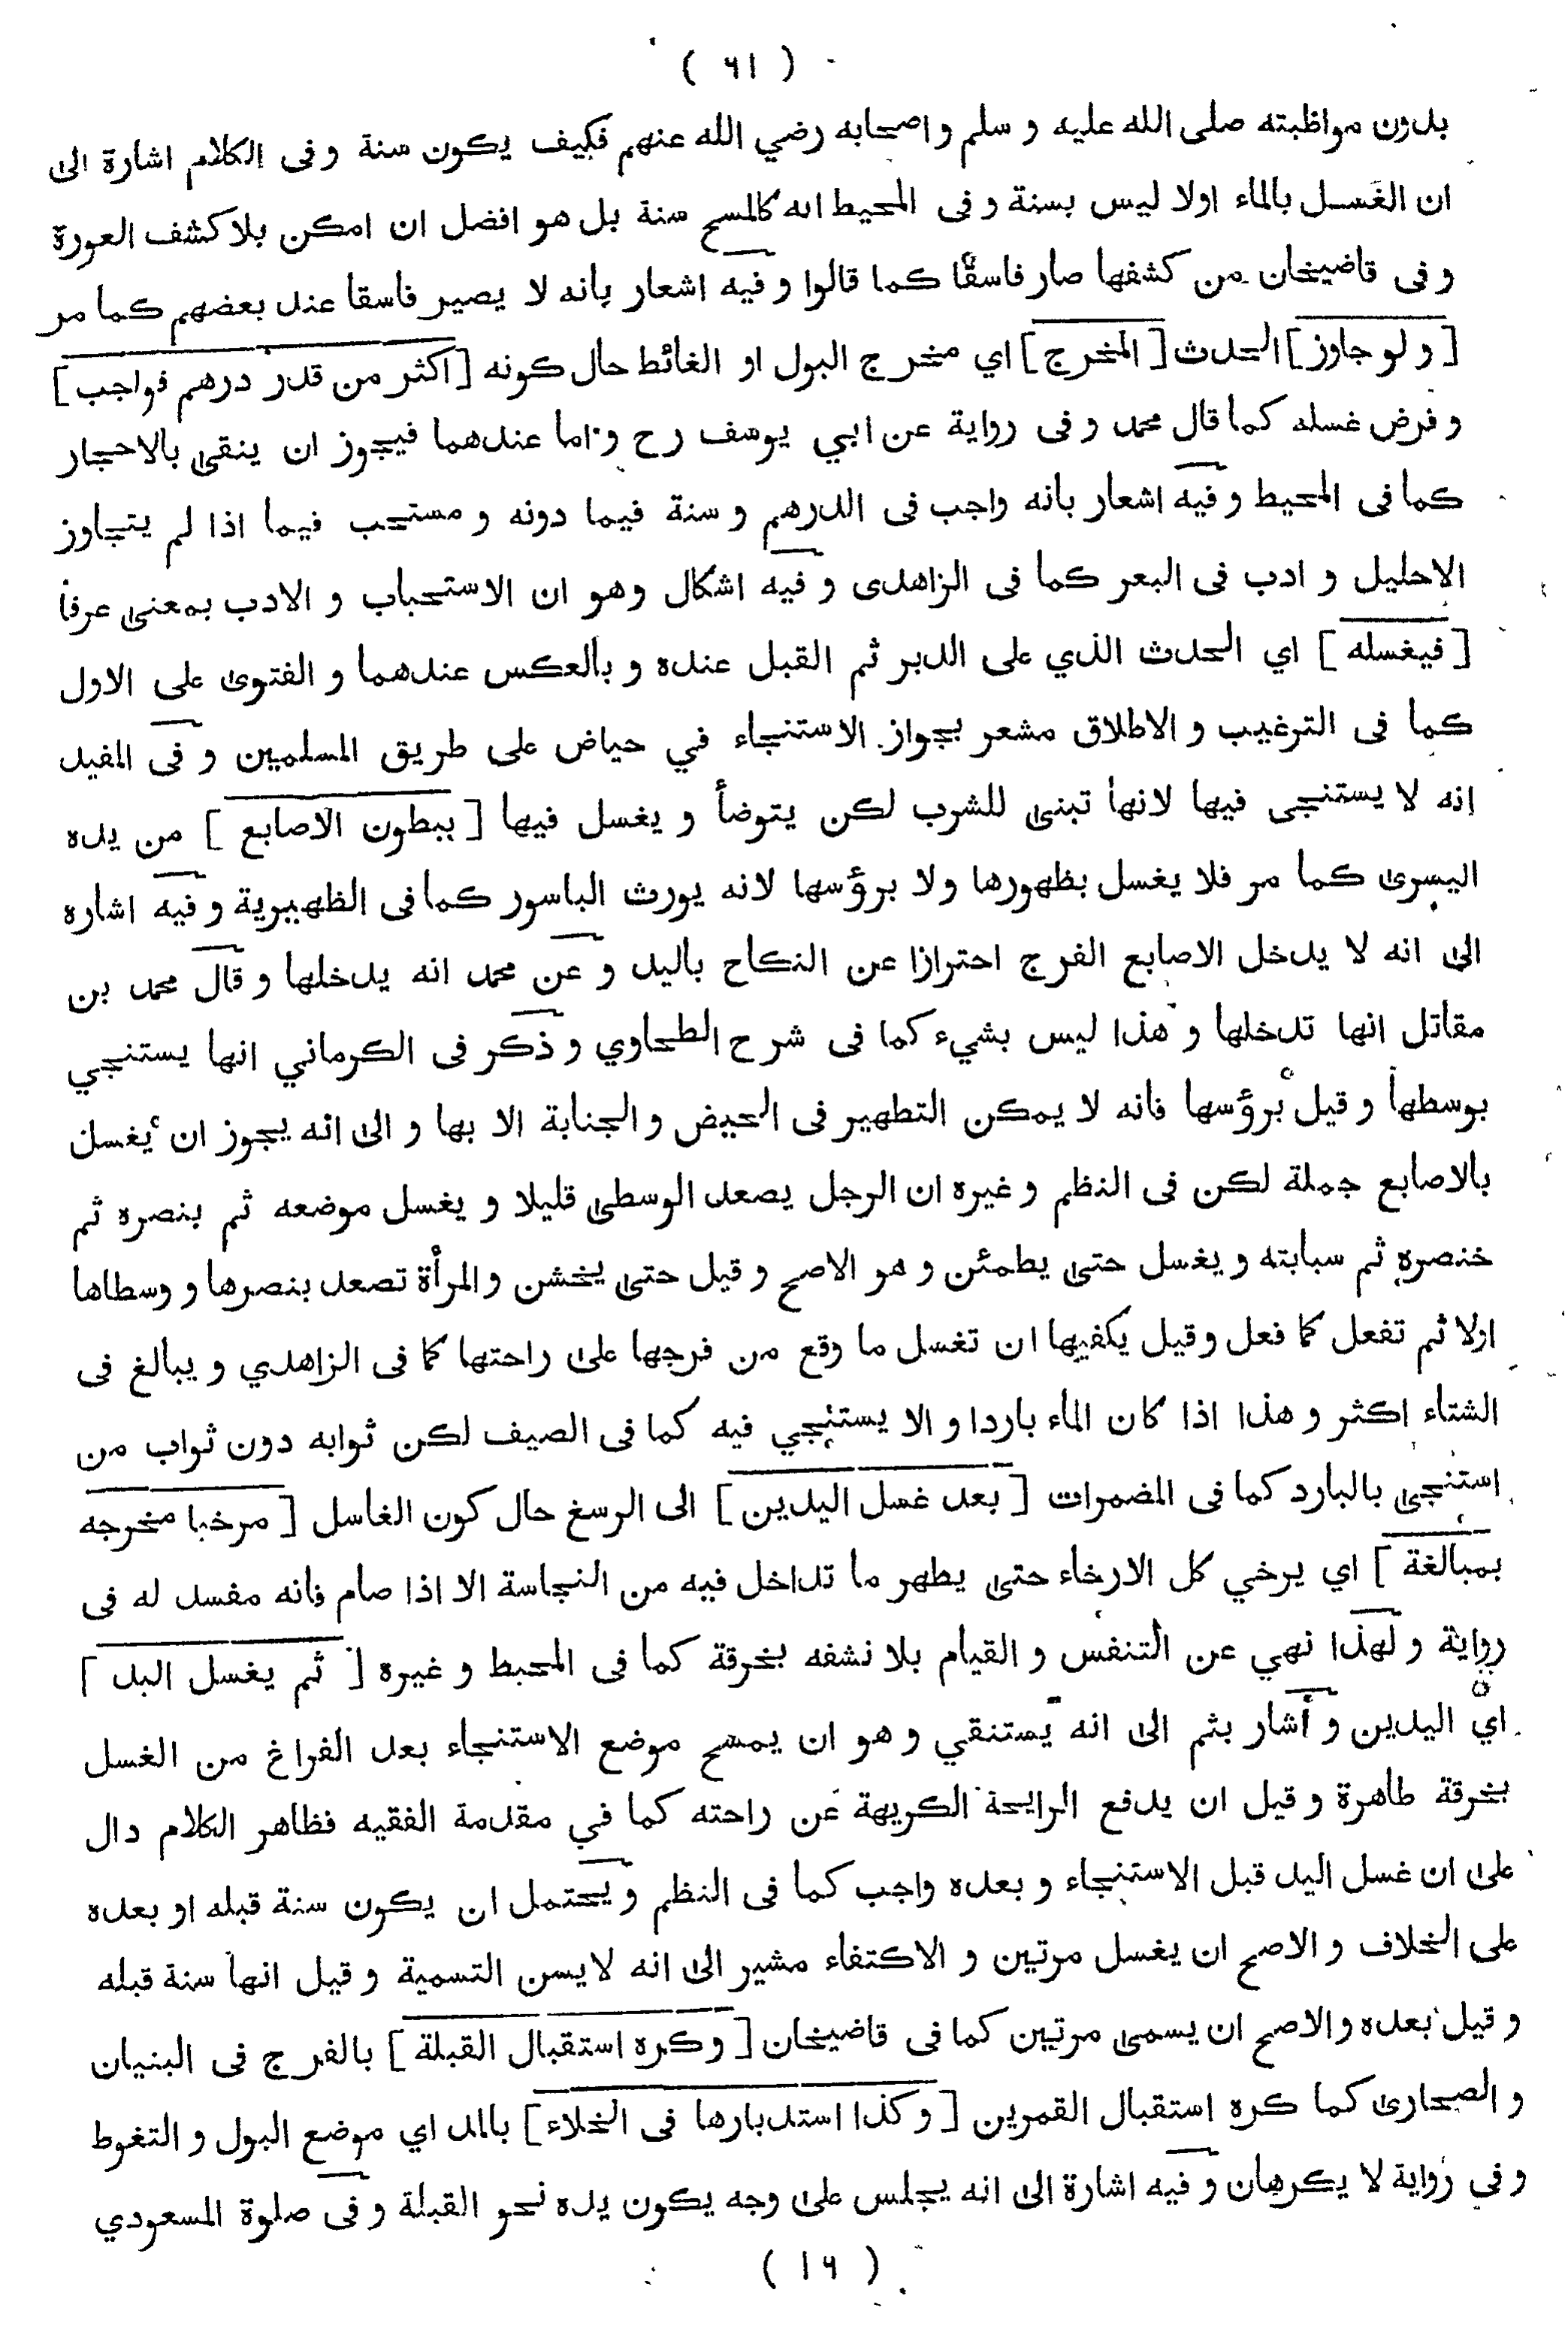 ( ٦١ )
بدون مواظبته صلى الله عليه و سلم و اصحابه رضي الله عنهم فكيف يكون سنة و فى الكلام اشارة الى
ان الغسل بالماء اولا ليس بسنة و فى المحيط انه كالمسح سنة بل هو افضل ان امكن بلا كشف العورة
و فى قاضيخان من كشفها صار فاسقًا كما قالوا و فيه اشعار بانه لا يصير فاسقا عند بعضهم كما مر
[ و لو جاوز ] الحدث [ المخرج ] اي مخرج البول او الغائط حال كونه [ اكثر من قدر درهم فواجب ]
و فرض غسله كما قال محمد و فى رواية عن ابي يوسف رح و اما عندهما فيجوز ان ينقى بالاحجار
كما فى المحيط و فيه اشعار بانه واجب فى الدرهم و سنة فيما دونه و مستحب فيما اذا لم يتجاوز
الاحليل و ادب فى البعر كما فى الزاهدى و فيه اشكال وهو ان الاستحباب و الادب بمعنى عرفا
[ فيغسله ] اي الحدث الذي على الدبر ثم القبل عنده و بالعكس عندهما و الفتوى على الاول
كما فى الترغيب و الاطلاق مشعر بجواز الاستنجاء في حياض على طريق المسلمين و فى المفيد
انه لا يستنجى فيها لانها تبنى للشرب لكن يتوضأ و يغسل فيها [ ببطون الاصابع ] من يده
اليسرى كما مر فلا يغسل بظهورها ولا برؤسها لانه يورث الباسور كما فى الظهيرية و فيه اشاره
الى انه لا يدخل الاصابع الفرج احترازا عن النكاح باليد و عن محمد انه يدخلها و قال محمد بن
مقاتل انها تدخلها و هذا ليس بشيء كما فى شرح الطحاوي و ذكر فى الكرماني انها يستنجي
بوسطها و قيل برؤسها فانه لا يمكن التطهير فى الحيض و الجنابة الا بها و الى انه يجوز ان يغسل
بالاصابع جملة لكن فى النظم و غيره ان الرجل يصعد الوسطى قليلا و يغسل موضعه ثم بنصره ثم
خنصره ثم سبابته و يغسل حتى يطمئن و هو الاصح و قيل حتى يخشن و المرأة تصعد بنصرها و وسطاها
اولا ثم تفعل كما فعل و قيل يكفيها ان تغسل ما وقع من فرجها على راحتها كما فى الزاهدي و يبالغ فى
الشتاء اكثر و هذا اذا كان الماء باردا و الا يستنجي فيه كما فى الصيف لكن ثوابه دون ثواب من
استنجى بالبارد كما فى المضمرات [ بعد غسل اليدين ] الى الرسغ حال كون الغاسل [ مرخيا مخرجه
بمبالغة ] اي يرخي كل الارخاء حتى يطهر ما تداخل فيه من النجاسة الا اذا صام فانه مفسد له فى
رواية و لهذا نهي عن التنفس و القيام بلا نشفه بخرقة كما فى المحيط و غيره [ ثم يغسل اليد ]
اي اليدين و أشار بثم الى انه يستنقي و هو ان يمسح موضع الاستنجاء بعد الفراغ من الغسل
بخرقة طاهرة و قيل ان يدفع الرايحة الكريهة عن راحته كما في مقدمة الفقيه فظاهر الكلام دال
على ان غسل اليد قبل الاستنجاء و بعده واجب كما فى النظم و يحتمل ان يكون سنة قبله او بعده
على الخلاف و الاصح ان يغسل مرتين و الاكتفاء مشير الى انه لا يسن التسمية و قيل انها سنة قبله
و قيل بعده والاصح ان يسمى مرتين كما فى قاضيخان [ و كره استقبال القبلة ] بالفرج فى البنيان
و الصحارى كما كره استقبال القمرين [ و كذا استدبارها فى الخلاء ] بالمد اي موضع البول و التغوط
و في رواية لا يكرهان و فيه اشارة الى انه يجلس على وجه يكون يده نحو القبلة و فى صلوة المسعودي
( ١٦ )